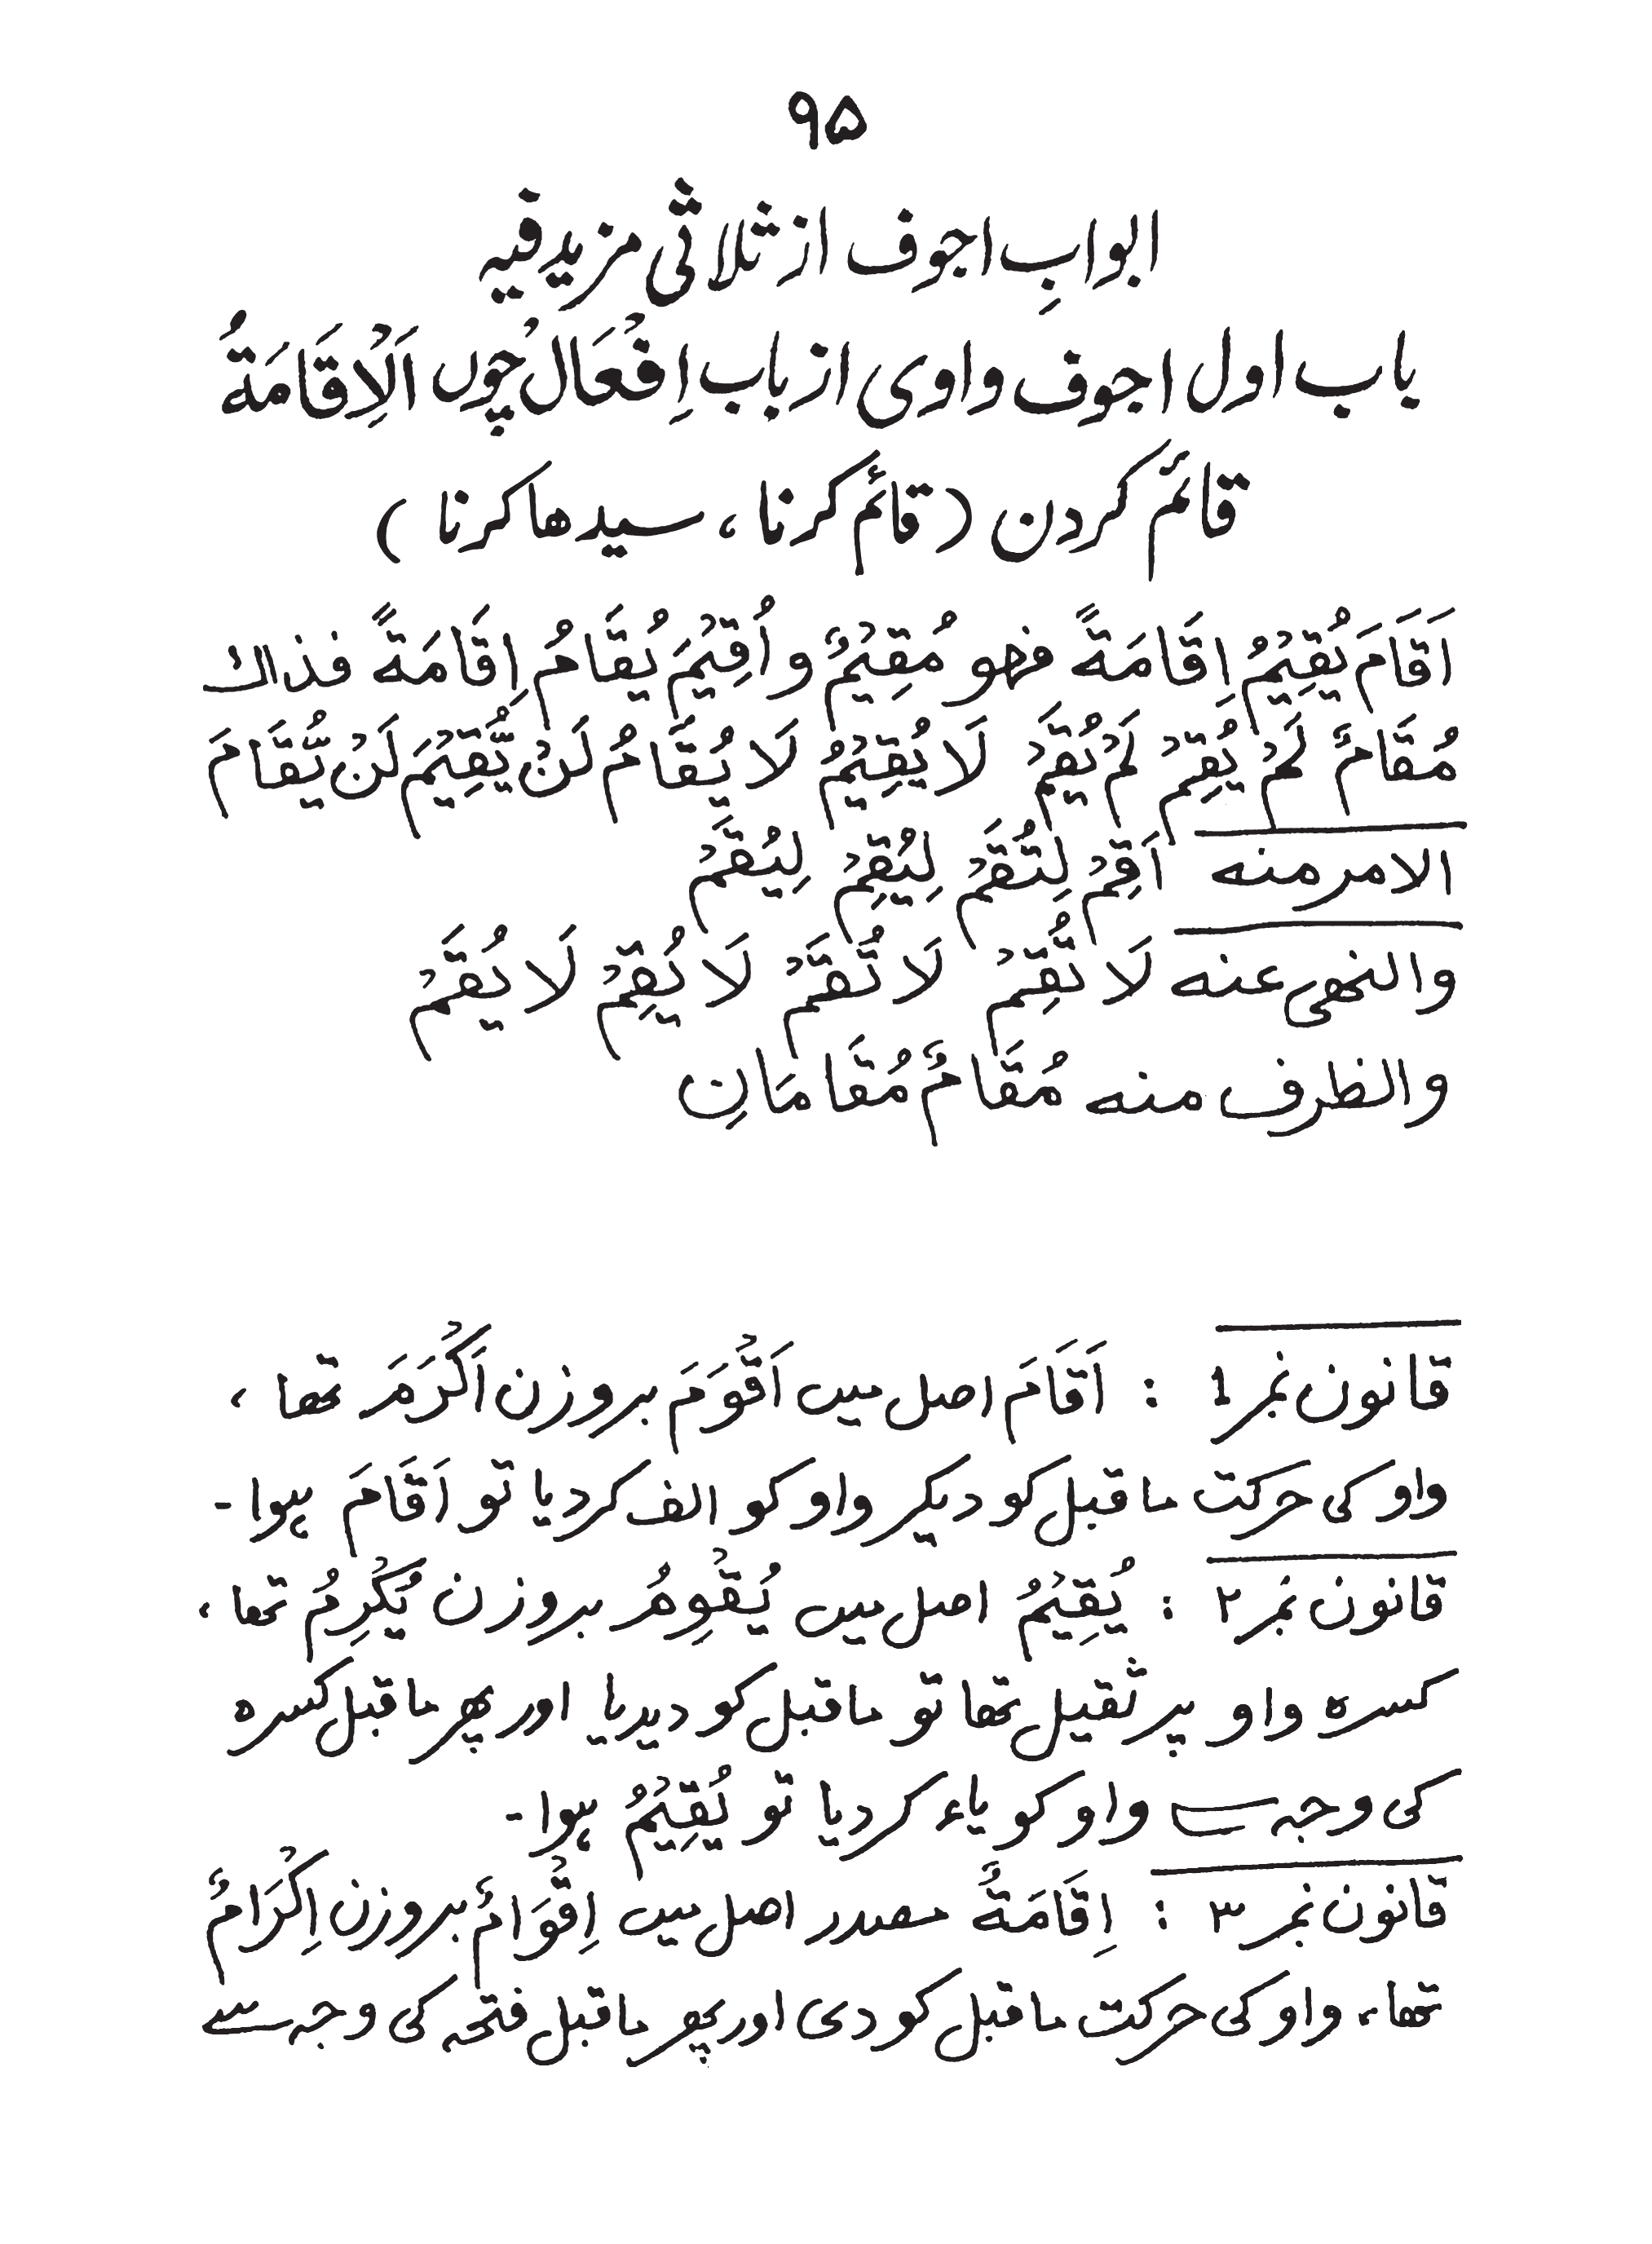 ۹۵
ابوابِ اجوف از ثلاثی مزید فیہ
باب اول اجوف واوی از باب اِفْعَال چُوں اَلْاِقَامَةُ
قائم کردن (قائم کرنا، سیدھا کرنا)
اَقَامَ يُقِيْمُ اِقَامَةً فهو مُقِيْمٌ و اُقِيْمَ يُقَامُ اِقَامَةً فذاك
مُقَامٌ لَمْ يُقِمْ لَمْ يُقَمْ لَا يُقِيْمُ لَا يُقَامُ لَنْ يُّقِيْمَ لَنْ يُّقَامَ
الامر منه اَقِمْ لِتُقَمْ لِيُقِمْ لِيُقَمْ
والنهى عنه لَا تُقِمْ لَا تُقَمْ لَا يُقِمْ لَا يُقَمْ
والظرف منه مُقَامٌ مُقَامَانِ
قانون نمبر 1 : اَقَامَ اصل میں اَقْوَمَ بروزن اَكْرَمَ تھا،
واو کی حرکت ماقبل کو دیکر واو کو الف کردیا تو اَقَامَ ہوا۔
قانون نمبر ۲ : يُقِيْمُ اصل میں يُقْوِمُ بروزن يُكْرِمُ تھا،
کسرہ واو پر ثقیل تھا تو ماقبل کو دیدیا اور پھر ماقبل کسرہ
کی وجہ سے واو کو یاء کردیا تو يُقِيْمُ ہوا۔
قانون نمبر ۳ : اِقَامَةٌ مصدر اصل میں اِقْوَامٌ بروزن اِكْرَامٌ
تھا، واو کی حرکت ماقبل کو دی اور پھر ماقبل فتحہ کی وجہ سے